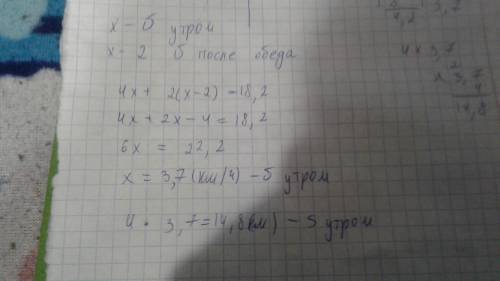 x - б утром
x - 2 б после обеда
4x + 2(x-2) = 18,2
4x + 2x - 4 = 18,2
6x = 22,2
x = 3,7 (км/ч) - б утром
4 · 3,7 = 14,8 км) - S утром
4,2
3,7
4 x 3,7
2
x 3,7
4
14,8